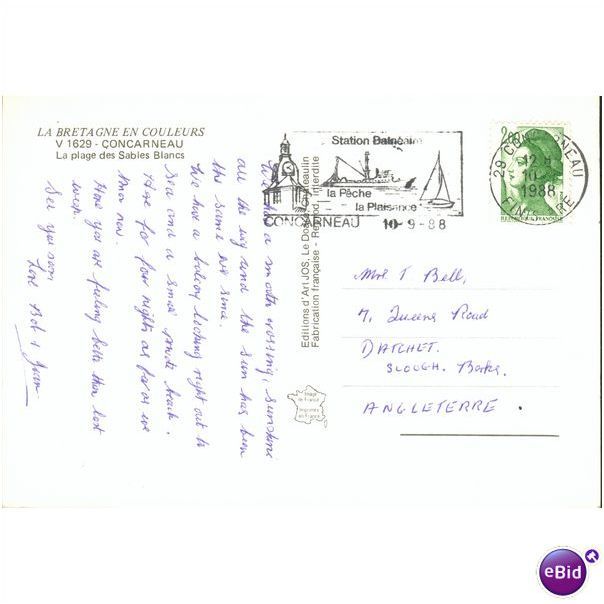 LA BRETAGNE EN COULEURS
V 1629 - CONCARNEAU
La plage des Sables Blancs
We had a smooth crossing, sunshine
all the way and the sun has been
the same ever since.
We have a balcony looking right out to
Sea and a small private beach.
Here for four nights as far as we
know now.
Hope you are feeling better than last
week.
See you soon
Love Bob & Joan
Station Balnéaire
la Pêche
la Plaisance
CONCARNEAU 10-9-88
2,00
29 CONCARNEAU
12 H
10-
1988
FINISTERE
REPUBLIQUE FRANCAISE
Editions d'Art JOS, Le
Fabrication française - Reprod. Interdite
Image
de France
Imprimée
en France
Mrs T Bell,
7, Queens Road
DATCHET.
SLOUGH. Berks.
ANGLETERRE.
eBid